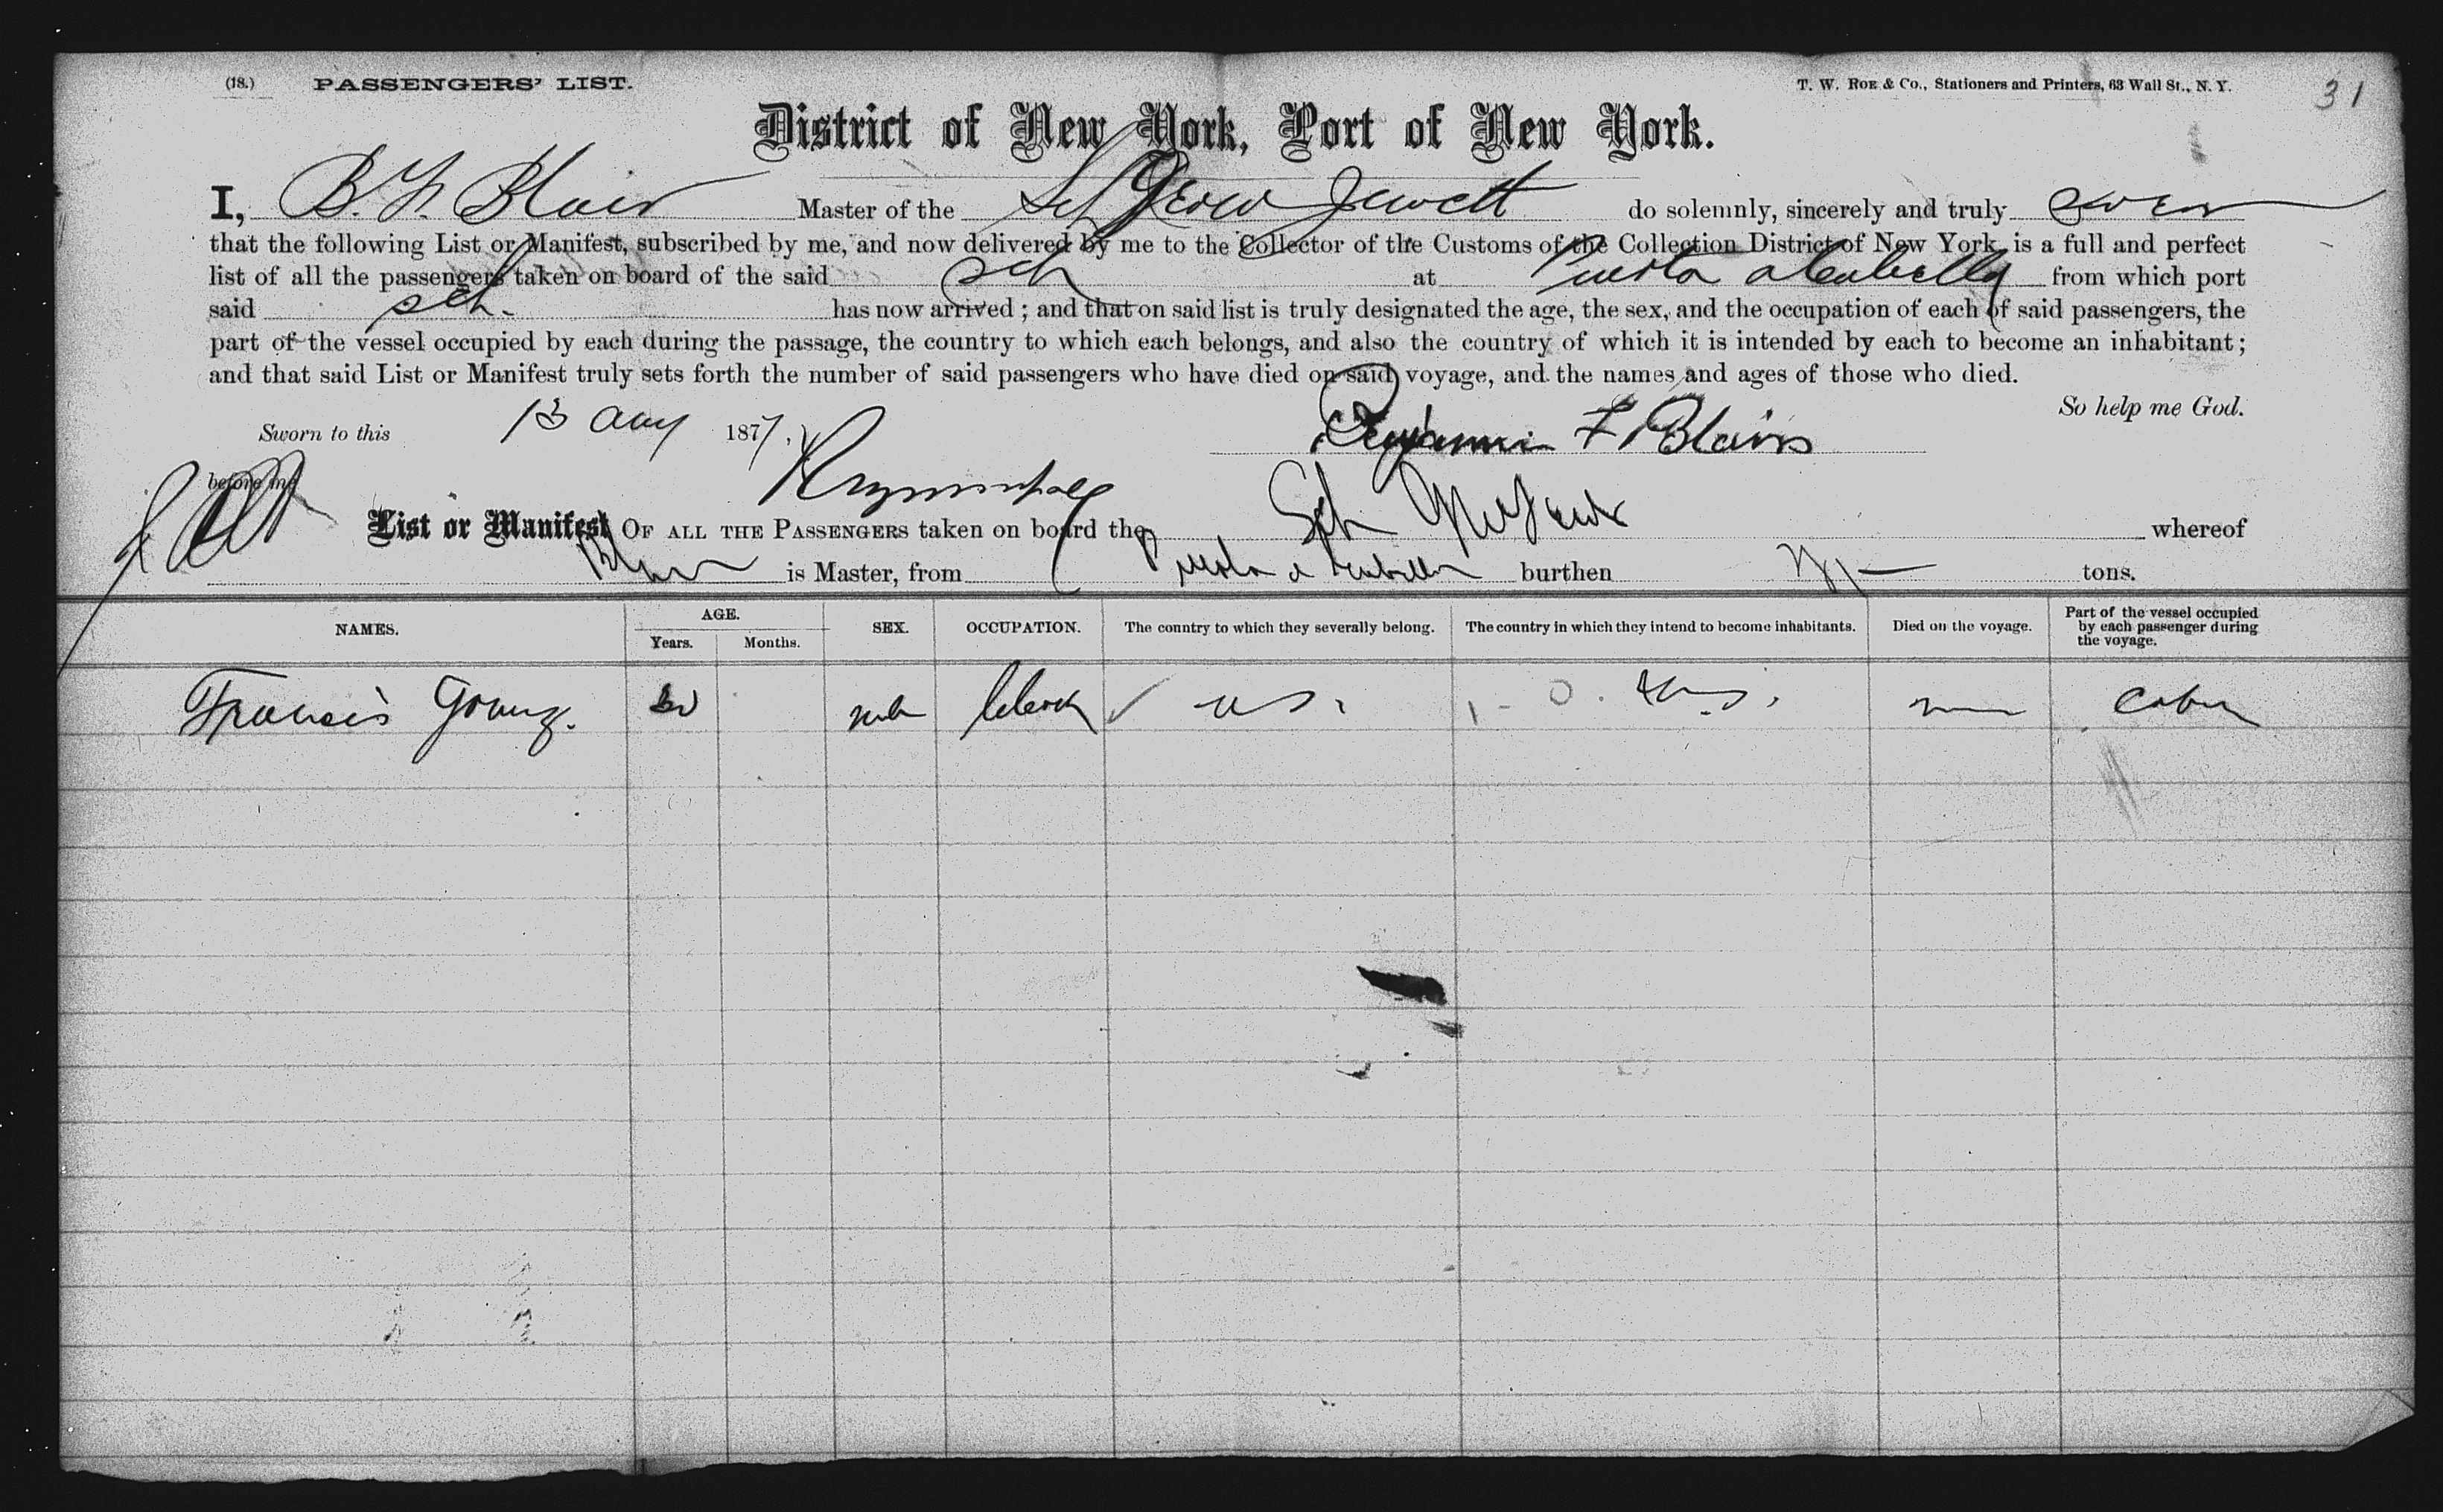 (18.) PASSENGERS' LIST. T. W. ROE & CO., Stationers and Printers, 63 Wall St., N. Y. 31
District of New York, Port of New York.
I, B. F. Blair Master of the Sch Jewett do solemnly, sincerely and truly swear
that the following List or Manifest, subscribed by me, and now delivered by me to the Collector of the Customs of the Collection District of New York, is a full and perfect
list of all the passengers taken on board of the said sch at Puerto Cabello from which port
said sch. has now arrived ; and that on said list is truly designated the age, the sex, and the occupation of each of said passengers, the
part of the vessel occupied by each during the passage, the country to which each belongs, and also the country of which it is intended by each to become an inhabitant ;
and that said List or Manifest truly sets forth the number of said passengers who have died on said voyage, and the names and ages of those who died.
So help me God.
Sworn to this 13 Aug 1877. Benjamin F Blair
before me
List or Manifest OF ALL THE PASSENGERS taken on board the Sch whereof
Blair is Master, from Puerto Cabello burthen tons.
NAMES. AGE. Years. Months. SEX. OCCUPATION. The country to which they severally belong. The country in which they intend to become inhabitants. Died on the voyage. Part of the vessel occupied by each passenger during the voyage.
Francis Young. Clerk U S. Cabin